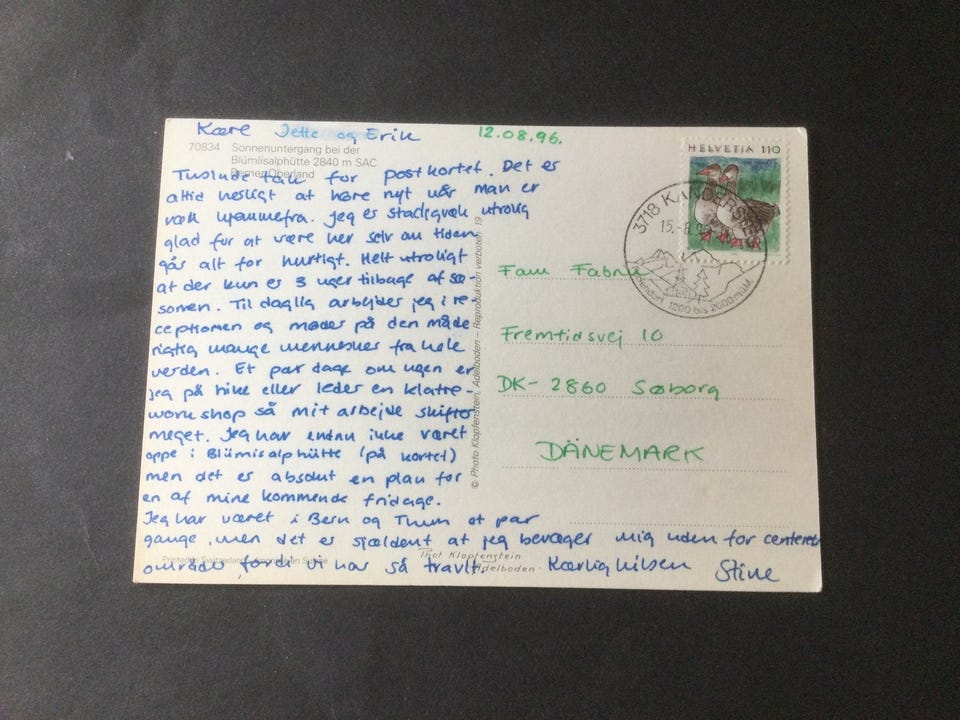 Kære Jette og Erik
12.08.96.
70834 Sonnenuntergang bei der
Blümlisalphütte 2840 m SAC
Berner Oberland
Tusinde tak for postkortet. Det er
altid hesligt at høre nyt når man er
væk hjemmefra. Jeg er stadigvæk utrolig
glad for at være her selv om tiden
går alt for hurtigt. Helt utroligt
at der kun er 3 uger tilbage af sæ-
sonen. Til daglig arbejder jeg i re-
ceptionen og møder på den måde
rigtig mange mennesker fra hele
verden. Et par dage om ugen er
jeg på hike eller leder en klatre-
workshop så mit arbejde skifter
meget. Jeg har endnu ikke været
oppe i Blümisalphütte (på kortet)
men det er absolut en plan for
en af mine kommende fridage.
Jeg har været i Bern og Thun et par
gange, men det er sjældent at jeg bevæger mig uden for centeret
område fordi vi har så travlt. Kærlig hilsen Stine
Printed in Switzerland
Thof Klopfenstein
Adelboden
© Photo Klopfenstein, Adelboden – Reproduktion verboten 19
HELVETIA 110
3718 KANDERSTEG
15.-8.96
1200 bis 2000 m ü.M.
Fam Fabri
Fremtidsvej 10
DK- 2860 Søborg
DÄNEMARK